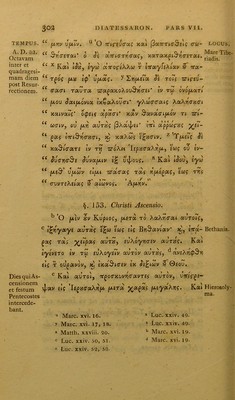 302 DIATESSARON. PARS VII.
TEMPUS. LOCUS.
A. D. 28.
Octavam
inter et
quadragesi-
mam diem
post Resur-
rectionem.
Mare Tibe-
riadis.
“ μην ὑμῖν. ᵃ Ὁ πιστεύσας καὶ βαπτισθεὶς σω-
“ θήσεται· ὁ δὲ ἀπιστήσας, κατακριθήσεται.
“ Καὶ ἰδοὺ, ἐγὼ ἀποστέλλω τ̀ ἐπαγγελίαν τ̃ πα-
“ τρός μȣ ἐφ᾽ ὑμᾶς. Σημεῖα δὲ τοῖς πιστεύ-
“ σασι ταῦτα παρακολουθήσει· ἐν τῷ ὀνόματί
“ μου δαιμόνια ἐκβαλοῦσι· γλώσσαις λαλήσουσι
“ καιναῖς· ὄφεις ἀροῦσι· κἂν θανάσιμόν τι πί-
“ ωσιν, οὐ μὴ αὐτοὺς βλάψει· ἐπὶ ἀῤῥώςους χεῖ-
“ ρας ἐπιθήσουσι, καὶ καλῶς ἕξουσιν. Ὑμεῖς δὲ
“ καθίσατε ἐν τῇ πόλει Ἱερουσαλὴμ, ἕως οὗ ἐν-
“ δύσησθε δύναμιν ἐξ ὕψους. Καὶ ἰδοὺ, ἐγὼ
“ μεθ᾽ ὑμῶν εἰμι πάσας τὰς ἡμέρας, ἕως τῆς
“ συντελείας τ̃ αἰῶνος. Ἀμήν.
§. 153. Christi Ascensio.
ᵇ Ὁ μὲν ὖν Κύριος, μετὰ τὸ λαλῆσαι αὐτοῖς,
ἐξήγαγε αὐτοὺς ἔξω ἕως εἰς Βηθανίαν· καὶ, ἐπά-
Bethania.
ρας τὰς χεῖρας αὑτοῦ, εὐλόγησεν αὐτούς. Καὶ
ἐγένετο ἐν τῷ εὐλογεῖν αὐτὸν αὐτοὺς, ἀνελήφθη
εἰς τ̀ οὐρανὸν, καὶ ἐκάθισεν ἐκ δεξιῶν τ̃ Θεοῦ.
Dies qui As-
censionem
et festum
Pentecostes
intercede-
bant.
Καὶ αὐτοὶ, προσκυνήσαντες αὐτὸν, ὑπέςρε-
ψαν εἰς Ἱερουσαλὴμ μετὰ χαρᾶς μεγάλης. Καὶ
Hierosoly-
ma.
Marc. xvi. 16.
Marc. xvi. 17, 18.
Matth. xxviii. 20.
Luc. xxiv. 50, 51.
Luc. xxiv. 52, 53.
Luc. xxiv. 49.
Luc. xxiv. 49.
Marc. xvi. 19.
Marc. xvi. 19.